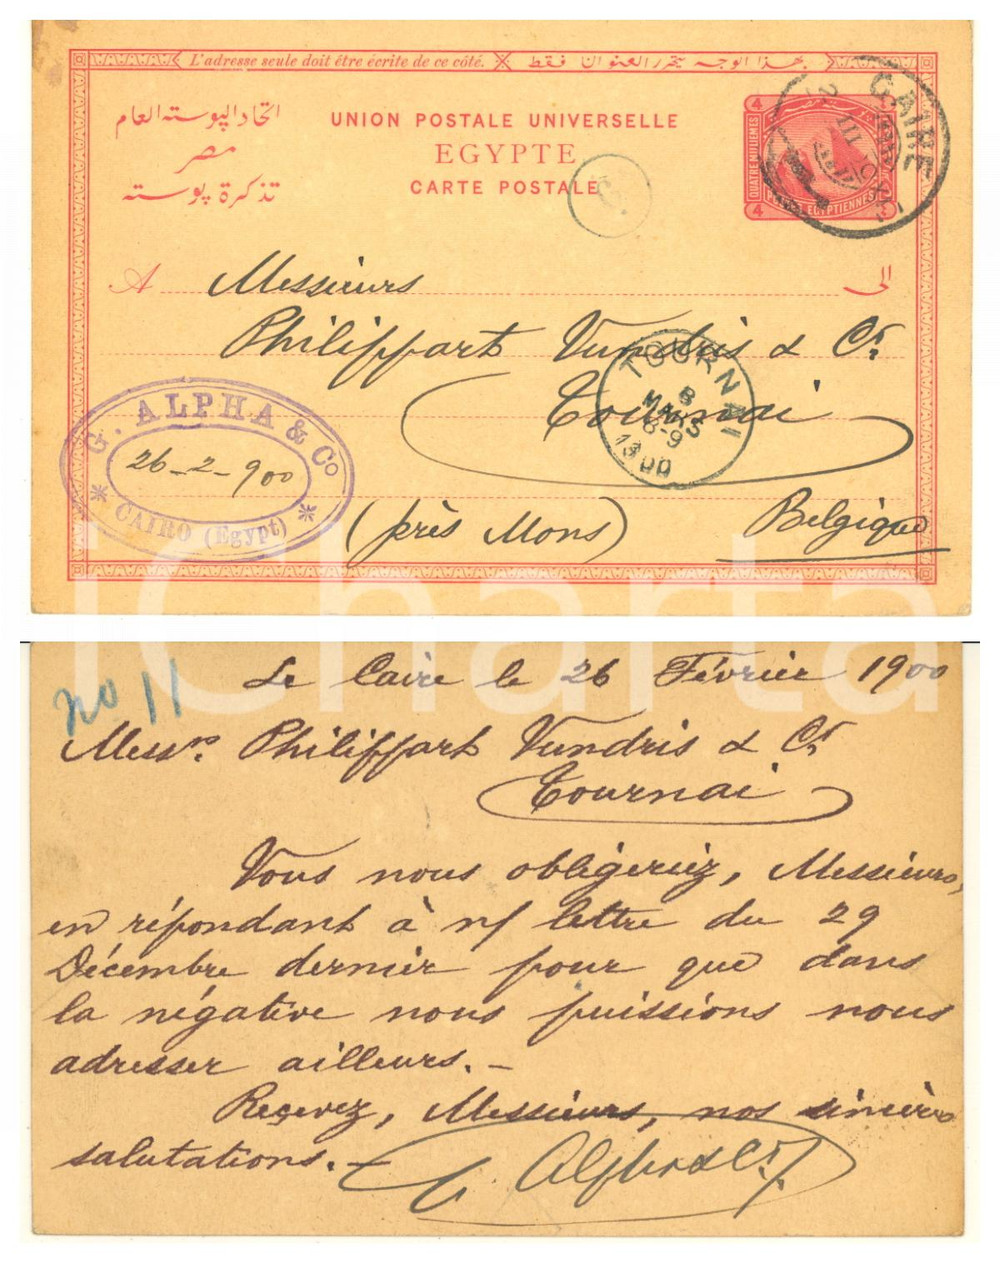 L'adresse seule doit être écrite de ce côté. بهذا الوجه يحرر العنوان فقط
اتحاد البوسته العام
مصر
تذكرة بوسته
UNION POSTALE UNIVERSELLE
EGYPTE
CARTE POSTALE
4 4
QUATRE MILLIEMES
EGYPTIENNES
4
CAIRE
III
6.
A Messieurs الى
Philippart Vundris & Cie
Tournai
TOURNAI
8
MARS
8-9
1900
G. ALPHA & Co
26-2-900
CAIRO (Egypt)
(près Mons) Belgique
iCharta
no 11
Le Caire le 26 Février 1900
Messrs Philippart Vundris & Cie
Tournai
Vous nous obligeriez, Messieurs,
en répondant à n/ lettre du 29
Décembre dernier pour que dans
la négative nous puissions nous
adresser ailleurs.-
Recevez, Messieurs, nos sincères
salutations.-
G. Alpha & Cie